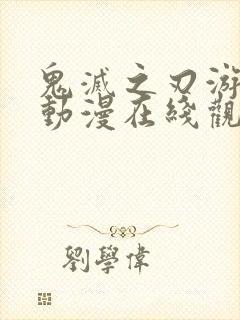 鬼滅之刃游
動漫在綫觀
劉學偉